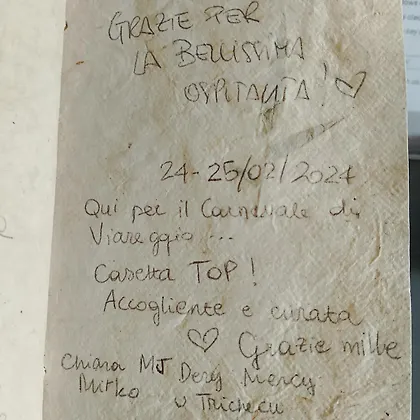 GRAZIE PER
LA BELLISSIMA
OSPITALITA'!
24-25/02/2024
Qui per il Carnevale di
Viareggio...
Casetta TOP!
Accogliente e curata
Grazie mille
Chiara MJ Dery Mercy
Mirko u Trichecu